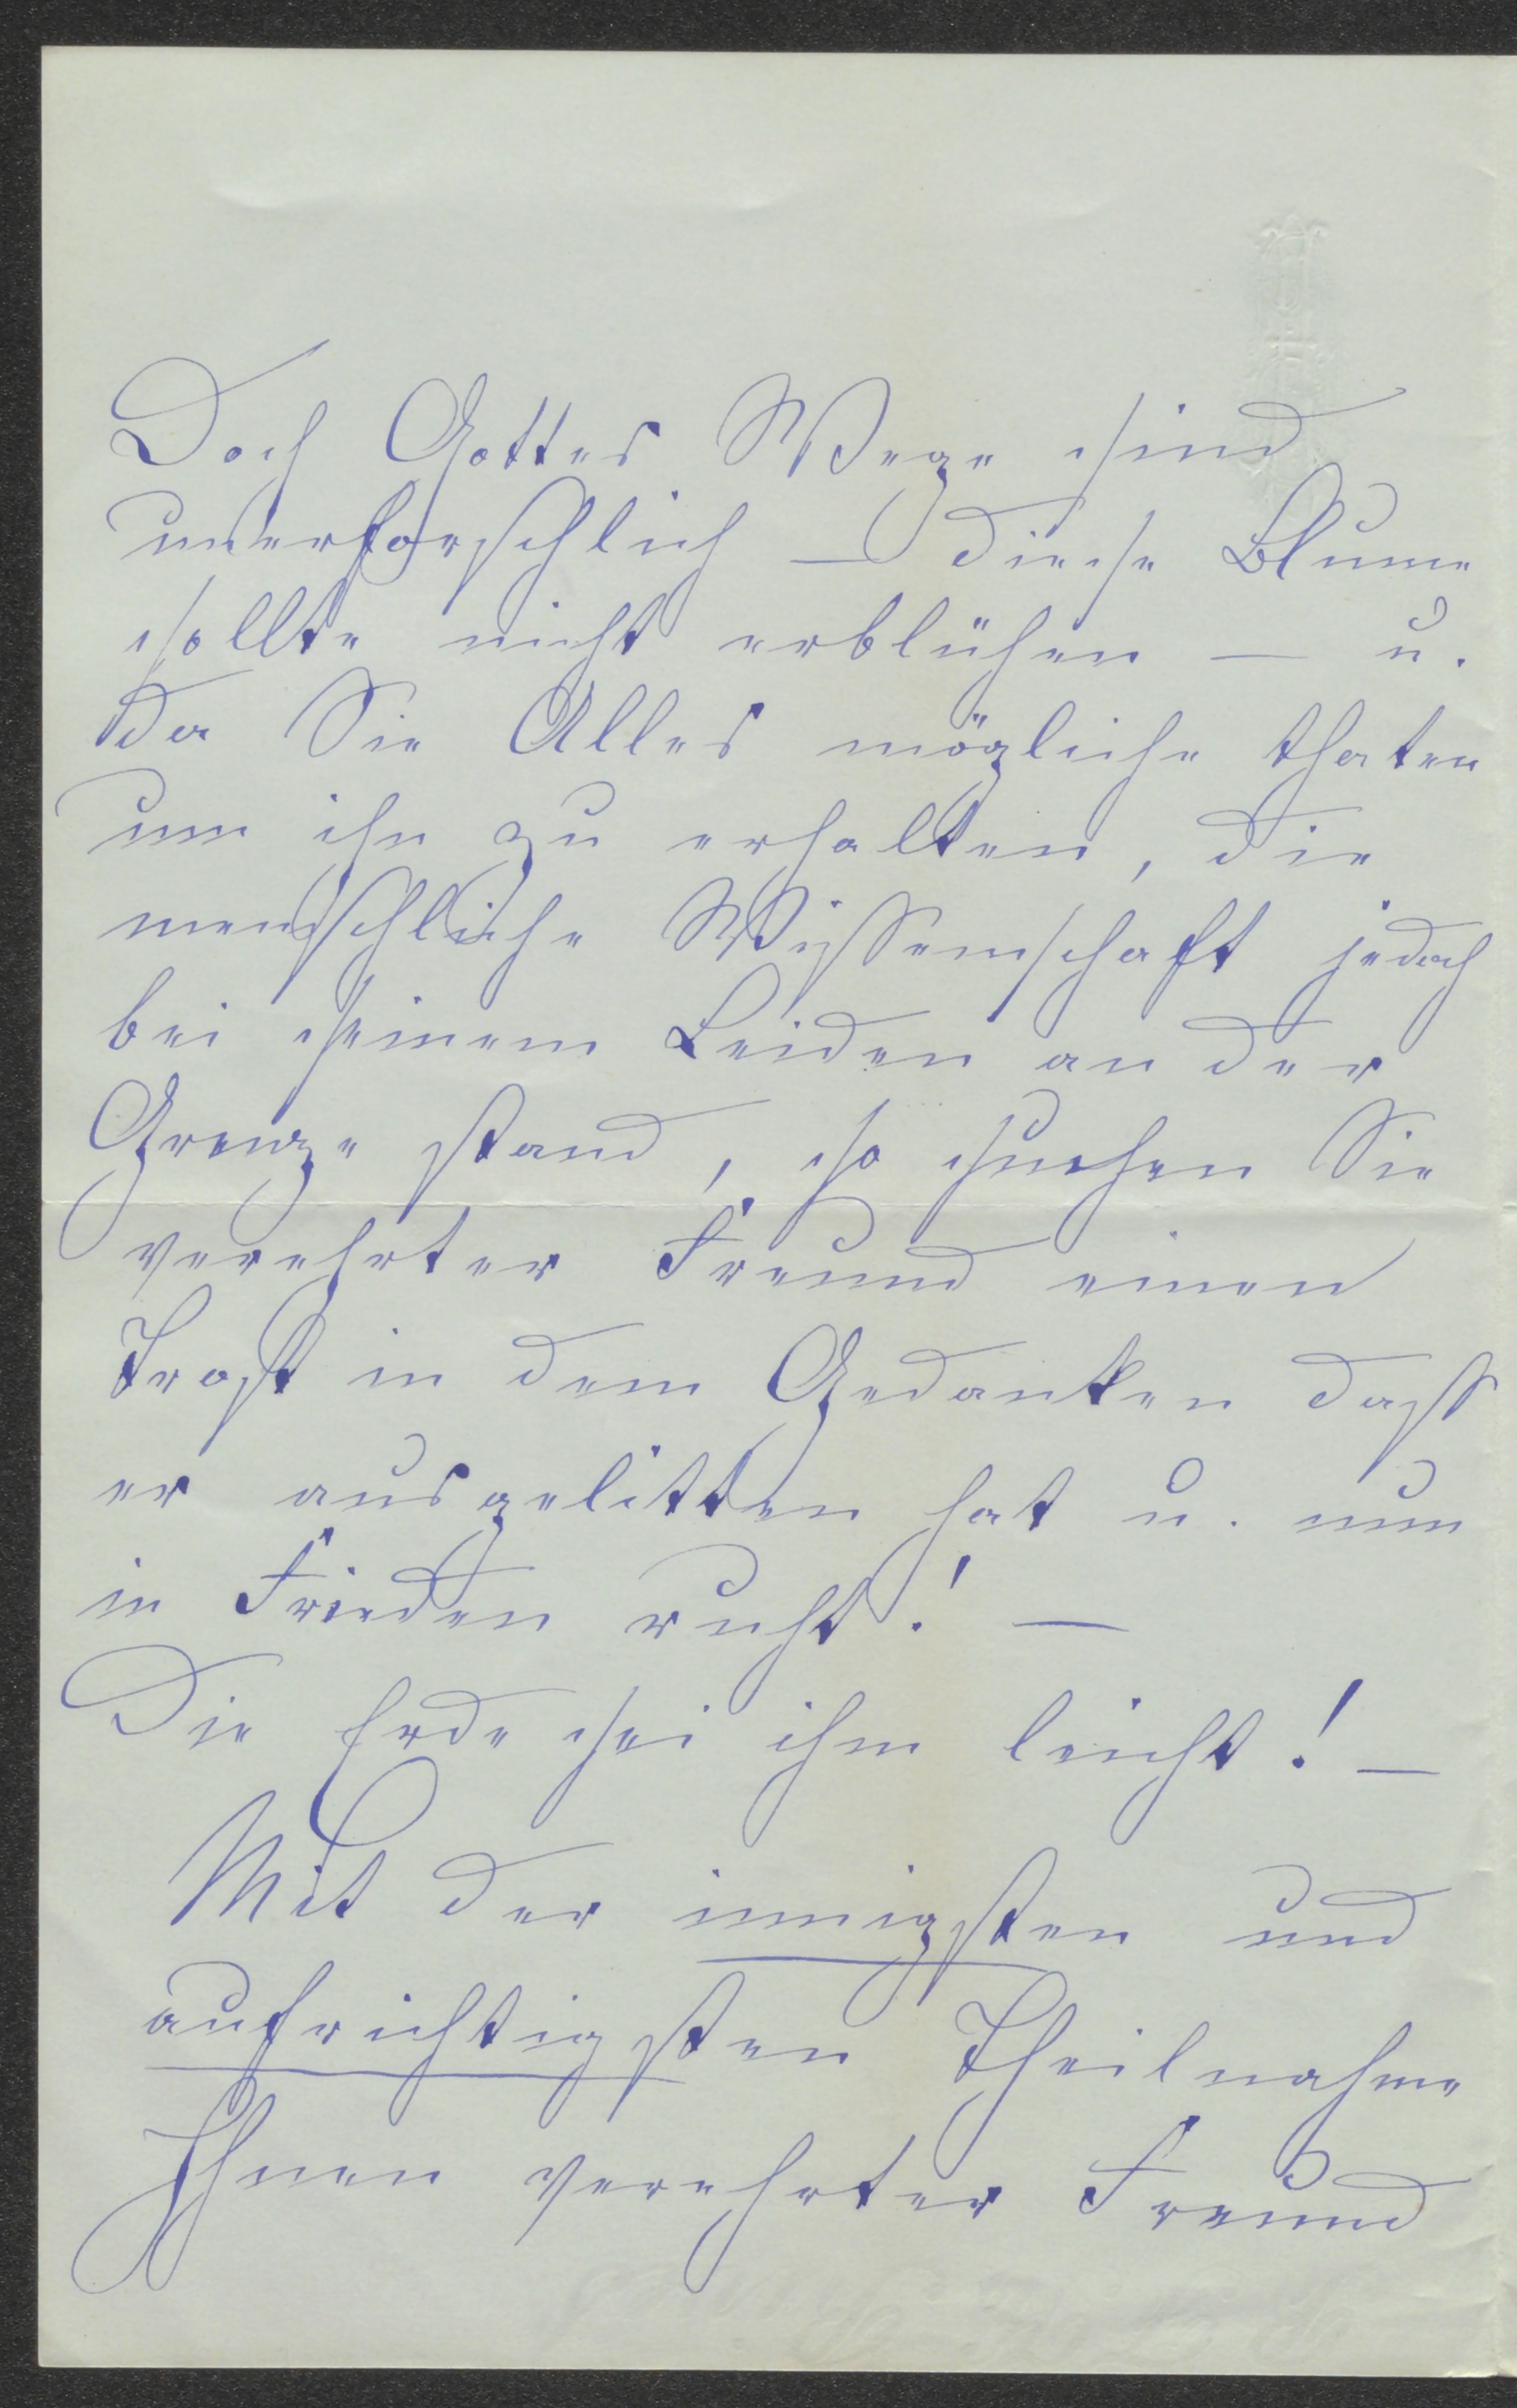 Doch Gottes Wege sind
unerforschlich — diese Blume
sollte nicht erblühen — u.
da Sie Alles mögliche thaten
um ihn zu erhalten, die
menschliche Wissenschaft jedoch
bei seinem Leiden an der
Grenze stand, so suchen Sie
verehrter Freund einen
Trost in dem Gedanken dass
er ausgelitten hat u. nun
in Frieden ruht! —
Die Erde sei ihm leicht! —
Mit der innigsten und
aufrichtigsten Theilnahme
Ihnen verehrter Freund